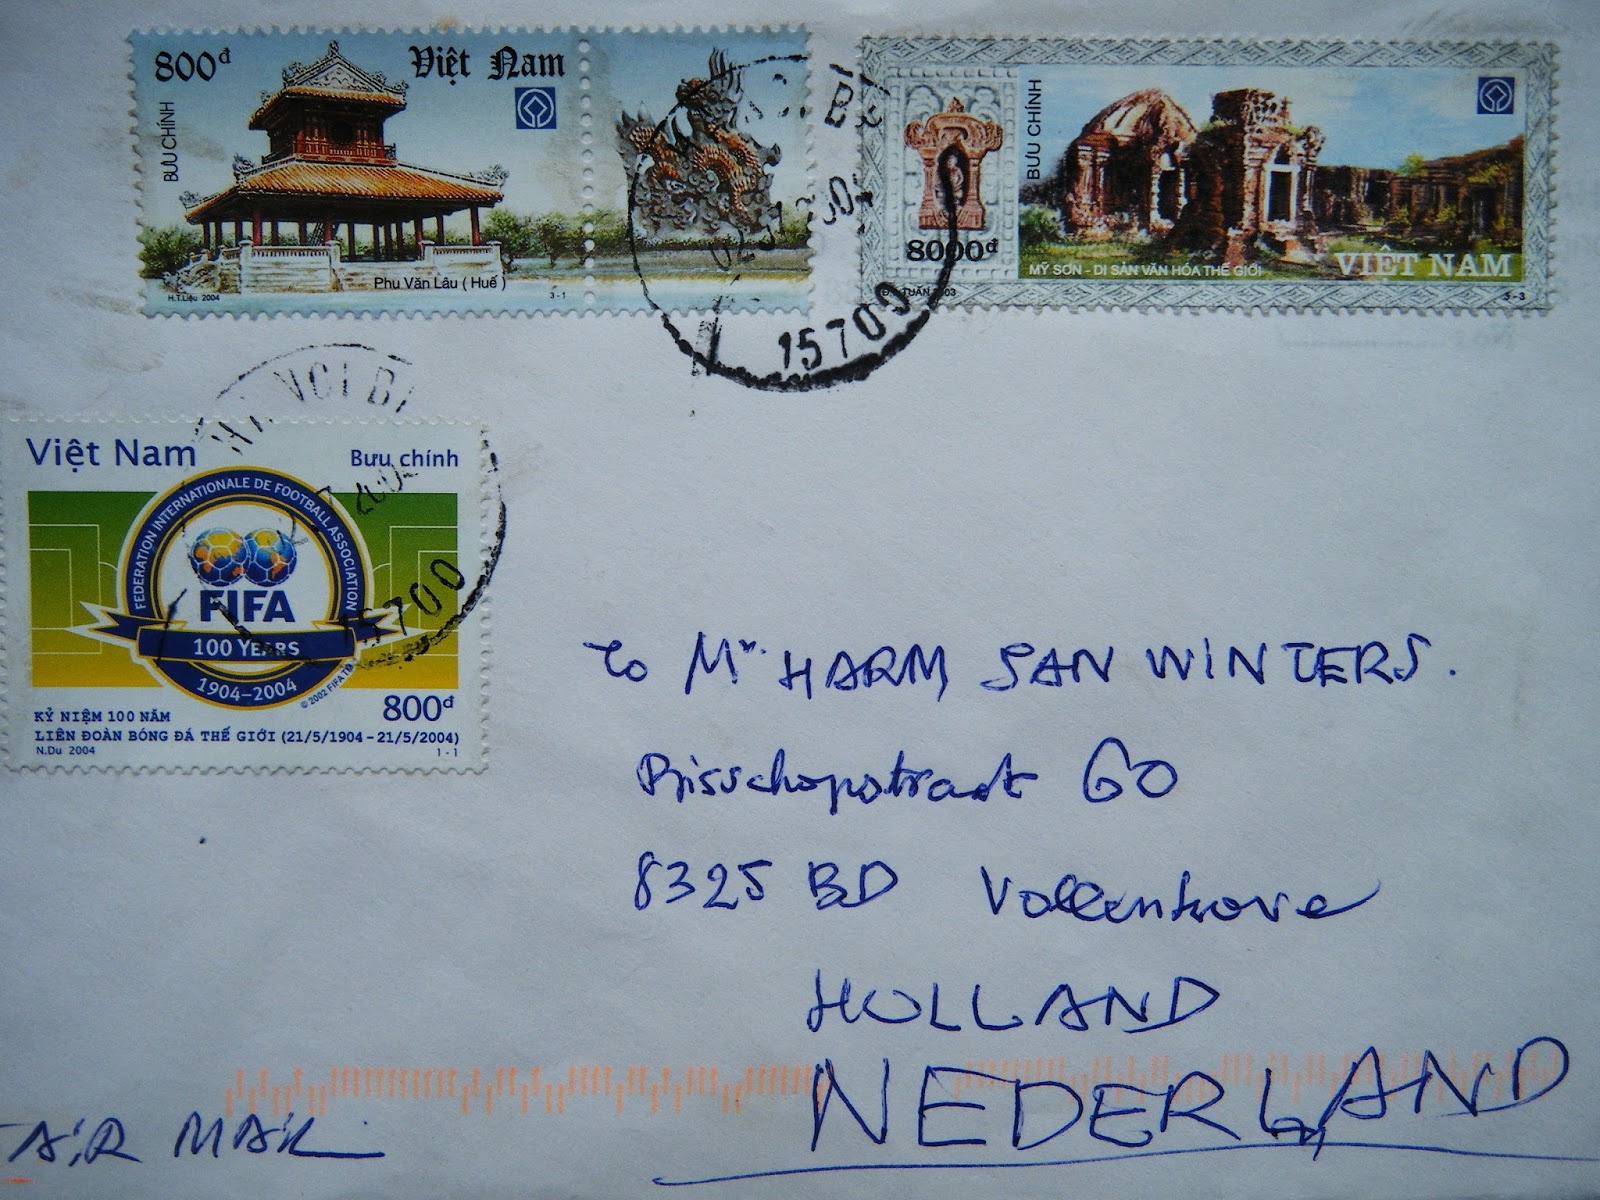 800đ Việt Nam
BƯU CHÍNH
Phu Văn Lâu ( Huế )
H.T.Liệu 2004 3-1
BƯU CHÍNH
8000đ
MỸ SƠN - DI SẢN VĂN HÓA THẾ GIỚI VIỆT NAM
TUẤN 3-3
15700
Việt Nam Bưu chính
FEDERATION INTERNATIONALE DE FOOTBALL ASSOCIATION
FIFA
100 YEARS
1904-2004
© 2002 FIFA TM
800đ
KỶ NIỆM 100 NĂM
LIÊN ĐOÀN BÓNG ĐÁ THẾ GIỚI (21/5/1904-21/5/2004)
N.Du 2004 1-1
15700
To Mr. HARM JAN WINTERS.
Bisschopstraat 60
8325 BD Vollenhove
HOLLAND
NEDERLAND
AIR MAIL